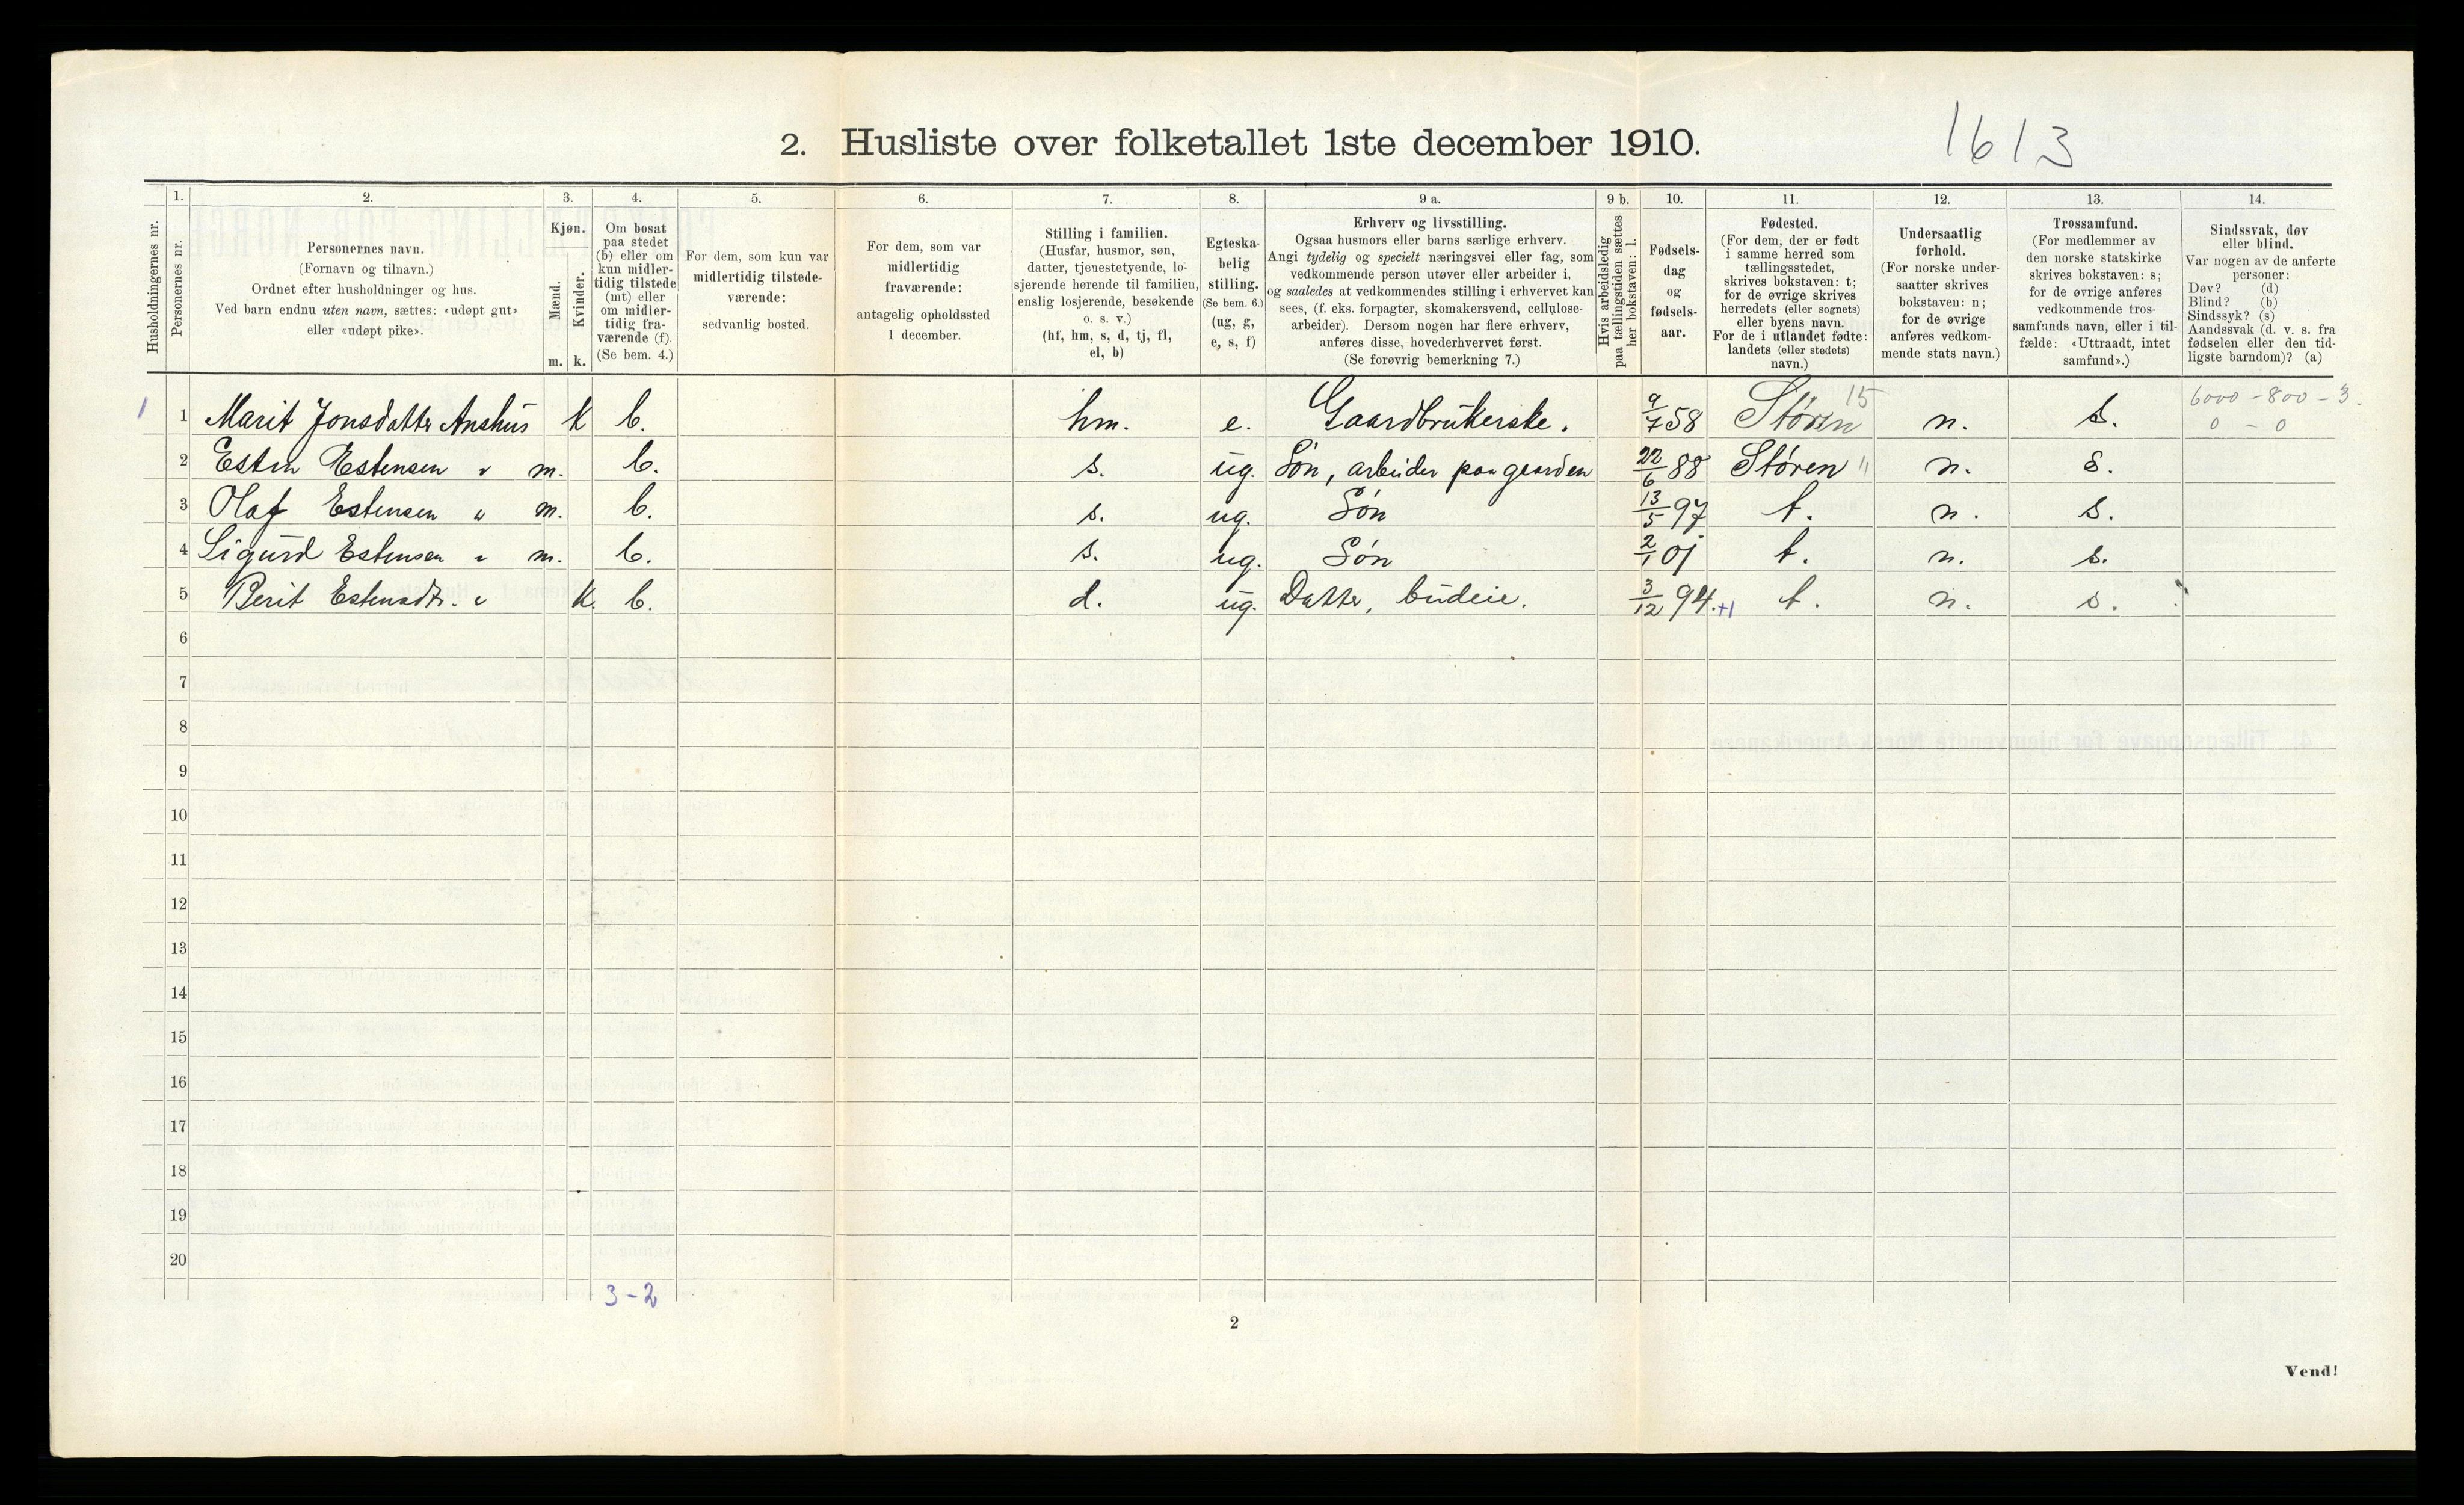 2. Husliste over folketallet 1ste december 1910.
1613
Husholdningernes nr.
1.
Personernes nr.
2.
Personernes navn.
(Fornavn og tilnavn.)
Ordnet efter husholdninger og hus.
Ved barn endnu uten navn, sættes: «udøpt gut»
eller «udøpt pike».
3.
Kjøn.
Mænd.
Kvinder.
m. k.
4.
Om bosat
paa stedet
(b) eller om
kun midler-
tidig tilstede
(mt) eller
om midler-
tidig fra-
værende (f).
(Se bem. 4.)
5.
For dem, som kun var
midlertidig tilstede-
værende:
sedvanlig bosted.
6.
For dem, som var
midlertidig
fraværende:
antagelig opholdssted
1 december.
7.
Stilling i familien.
(Husfar, husmor, søn,
datter, tjenestetyende, lo-
sjerende hørende til familien,
enslig losjerende, besøkende
o. s. v.)
(hf, hm, s, d, tj, fl,
el, b)
8.
Egteska-
belig
stilling.
(Se bem. 6.)
(ug, g,
e, s, f)
9 a.
Erhverv og livsstilling.
Ogsaa husmors eller barns særlige erhverv.
Angi tydelig og specielt næringsvei eller fag, som
vedkommende person utøver eller arbeider i,
og saaledes at vedkommendes stilling i erhvervet kan
sees, (f. eks. forpagter, skomakersvend, cellulose-
arbeider). Dersom nogen har flere erhverv,
anføres disse, hovederhvervet først.
(Se forøvrig bemerkning 7.)
9 b.
Hvis arbeidsledig
paa tællingstiden sættes
her bokstaven: l.
10.
Fødsels-
dag
og
fødsels-
aar.
11.
Fødested.
(For dem, der er født
i samme herred som
tællingsstedet,
skrives bokstaven: t;
for de øvrige skrives
herredets (eller sognets)
eller byens navn.
For de i utlandet fødte:
landets (eller stedets)
navn.)
12.
Undersaatlig
forhold.
(For norske under-
saatter skrives
bokstaven: n;
for de øvrige
anføres vedkom-
mende stats navn.)
13.
Trossamfund.
(For medlemmer av
den norske statskirke
skrives bokstaven: s;
for de øvrige anføres
vedkommende tros-
samfunds navn, eller i til-
fælde: «Uttraadt, intet
samfund».)
14.
Sindssvak, døv
eller blind.
Var nogen av de anførte
personer:
Døv? (d)
Blind? (b)
Sindssyk? (s)
Aandssvak (d. v. s. fra
fødselen eller den tid-
ligste barndom)? (a)
15 6000 - 800 - 3.
1 1 Marit Jonsdatter Anshus k b. hm. e. Gaardbrukerske. 9/7 58 Støren n. s. 0 - 0
2 Esten Estensen " m. b. s. ug. Søn, arbeider paa gaarden 22/6 88 Støren " n. s.
3 Olaf Estensen " m. b. s. ug. Søn 13/5 97 t. n. s.
4 Sigurd Estensen " m. b. s. ug. Søn 2/1 01 t. n. s.
5 Berit Estensdtr. " k. b. d. ug. Datter, budeie. 3/12 94. +1 t. n. s.
6
7
8
9
10
11
12
13
14
15
16
17
18
19
20
3 - 2
2
Vend!